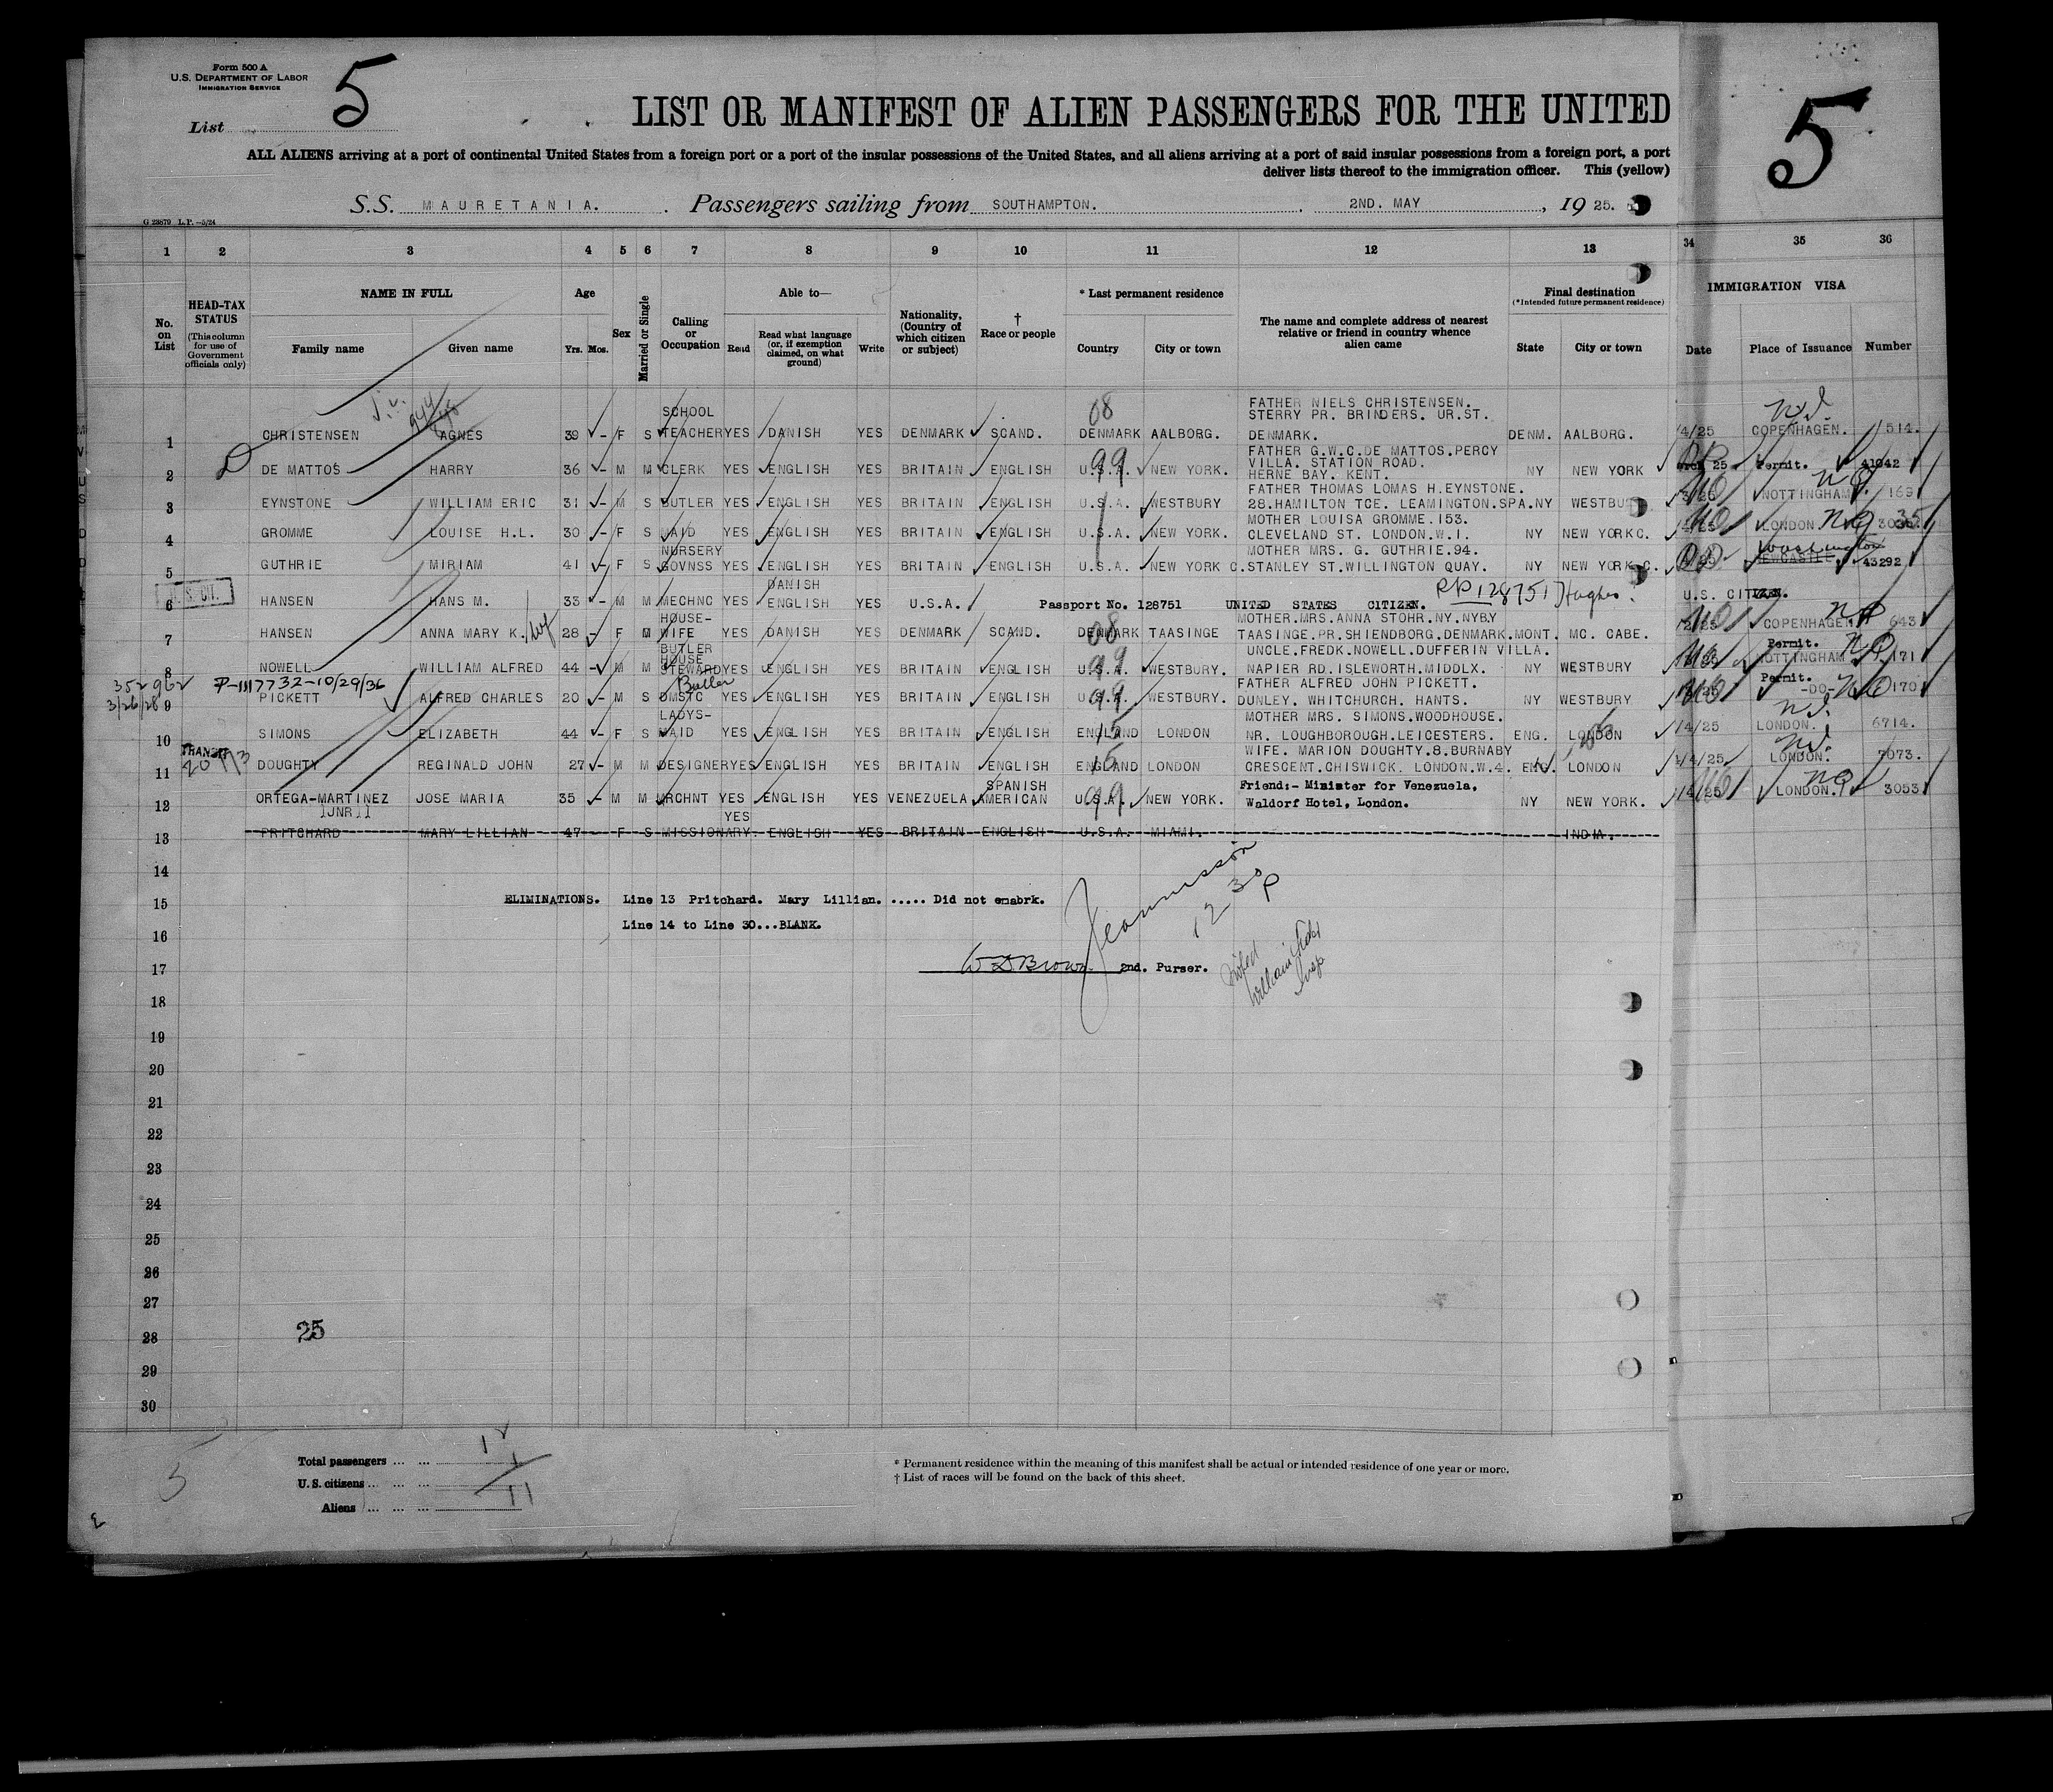 Form 500 A
U.S. DEPARTMENT OF LABOR
IMMIGRATION SERVICE
List 5
5
LIST OR MANIFEST OF ALIEN PASSENGERS FOR THE UNITED
ALL ALIENS arriving at a port of continental United States from a foreign port or a port of the insular possessions of the United States, and all aliens arriving at a port of said insular possessions from a foreign port, a port
deliver lists thereof to the immigration officer. This (yellow)
S.S. MAURETANIA. Passengers sailing from SOUTHAMPTON. 2ND. MAY, 19 25.
G 23879 L.P.—5/24
1 2 3 4 5 6 7 8 9 10 11 12 13 34 35 36
No. on List
HEAD-TAX STATUS (This column for use of Government officials only)
NAME IN FULL Family name Given name
Age Yrs. Mos.
Sex
Married or Single
Calling or Occupation
Able to— Read Read what language (or, if exemption claimed, on what ground) Write
Nationality, (Country of which citizen or subject)
† Race or people
* Last permanent residence Country City or town
The name and complete address of nearest relative or friend in country whence alien came
Final destination (*Intended future permanent residence) State City or town
IMMIGRATION VISA Date Place of Issuance Number
1 CHRISTENSEN AGNES 39 - F S SCHOOL TEACHER YES DANISH YES DENMARK SCAND. 08 DENMARK AALBORG. FATHER NIELS CHRISTENSEN. STERRY PR. BRINDERS. UR.ST. DENMARK. DENM. AALBORG. /4/25 COPENHAGEN. 514.
2 DE MATTOS HARRY 36 - M M CLERK YES ENGLISH YES BRITAIN ENGLISH 99 U.S.A. NEW YORK. FATHER G.W.C.DE MATTOS.PERCY VILLA. STATION ROAD. HERNE BAY. KENT. NY NEW YORK 25 Permit. 41942
3 EYNSTONE WILLIAM ERIC 31 - M S BUTLER YES ENGLISH YES BRITAIN ENGLISH U.S.A. WESTBURY FATHER THOMAS LOMAS H.EYNSTONE. 28.HAMILTON TCE. LEAMINGTON.SPA. NY WESTBU NOTTINGHAM 169
4 GROMME LOUISE H.L. 30 - F S MAID YES ENGLISH YES BRITAIN ENGLISH U.S.A. NEW YORK. MOTHER LOUISA GROMME.153. CLEVELAND ST. LONDON.W.1. NY NEW YORK C. LONDON
5 GUTHRIE MIRIAM 41 - F S NURSERY GOVNSS YES ENGLISH YES BRITAIN ENGLISH U.S.A. NEW YORK C. MOTHER MRS. G. GUTHRIE.94. STANLEY ST.WILLINGTON QUAY. NY NEW YORK C. Washington NEWCASTLE 43292
6 HANSEN HANS M. 33 - M M MECHNC YES DANISH ENGLISH YES U.S.A. Passport No. 128751 UNITED STATES CITIZEN. PP 128751 Hughes. U.S. CITIZEN.
7 HANSEN ANNA MARY K. 28 - F M HOUSE-WIFE YES DANISH YES DENMARK SCAND. 08 DENMARK TAASINGE MOTHER.MRS.ANNA STOHR.NY.NYBY TAASINGE.PR.SHIENDBORG.DENMARK. MONT. MC. CABE. COPENHAGEN 643
8 NOWELL WILLIAM ALFRED 44 - M M BUTLER HOUSE STEWARD YES ENGLISH YES BRITAIN ENGLISH 99 U.S.A. WESTBURY. UNCLE.FREDK.NOWELL.DUFFERIN VILLA. NAPIER RD.ISLEWORTH.MIDDLX. NY WESTBURY Permit. NOTTINGHAM 171
352962 3/26/28 P-1117732-10/29/36
9 PICKETT ALFRED CHARLES 20 - M S Butler DMSTC YES ENGLISH YES BRITAIN ENGLISH 99 WESTBURY. FATHER ALFRED JOHN PICKETT. DUNLEY. WHITCHURCH. HANTS. NY WESTBURY Permit. -DO- 170
10 SIMONS ELIZABETH 44 - F S LADYS-MAID YES ENGLISH YES BRITAIN ENGLISH 15 ENGLAND LONDON MOTHER MRS. SIMONS.WOODHOUSE. NR. LOUGHBOROUGH.LEICESTERS. ENG. LONDON /4/25 LONDON. 6714.
11 TRANSIT DOUGHTY REGINALD JOHN 27 - M M DESIGNER YES ENGLISH YES BRITAIN ENGLISH 15 ENGLAND LONDON WIFE. MARION DOUGHTY.8.BURNABY CRESCENT.CHISWICK. LONDON.W.4. ENG. LONDON /4/25 LONDON. 7073.
12 ORTEGA-MARTINEZ JNR JOSE MARIA 35 - M M MRCHNT YES ENGLISH YES VENEZUELA SPANISH AMERICAN 99 U.S.A. NEW YORK. Friend:- Minister for Venezuela, Waldorf Hotel, London. NY NEW YORK. /4/25 LONDON. 3053
13 PRITCHARD MARY LILLIAN 47 - F S MISSIONARY. YES ENGLISH YES BRITAIN ENGLISH U.S.A. MIAMI. INDIA.
14
15 ELIMINATIONS. Line 13 Pritchard. Mary Lillian. ..... Did not emabrk.
Line 14 to Line 30...BLANK.
16
17 W S Brown 2nd. Purser.
18
19
20
21
22
23
24
25
26
27
28 25
29
30
Total passengers ... ... 12
U.S. citizens ... ... ... 1
Aliens ... ... ... 11
* Permanent residence within the meaning of this manifest shall be actual or intended residence of one year or more.
† List of races will be found on the back of this sheet.